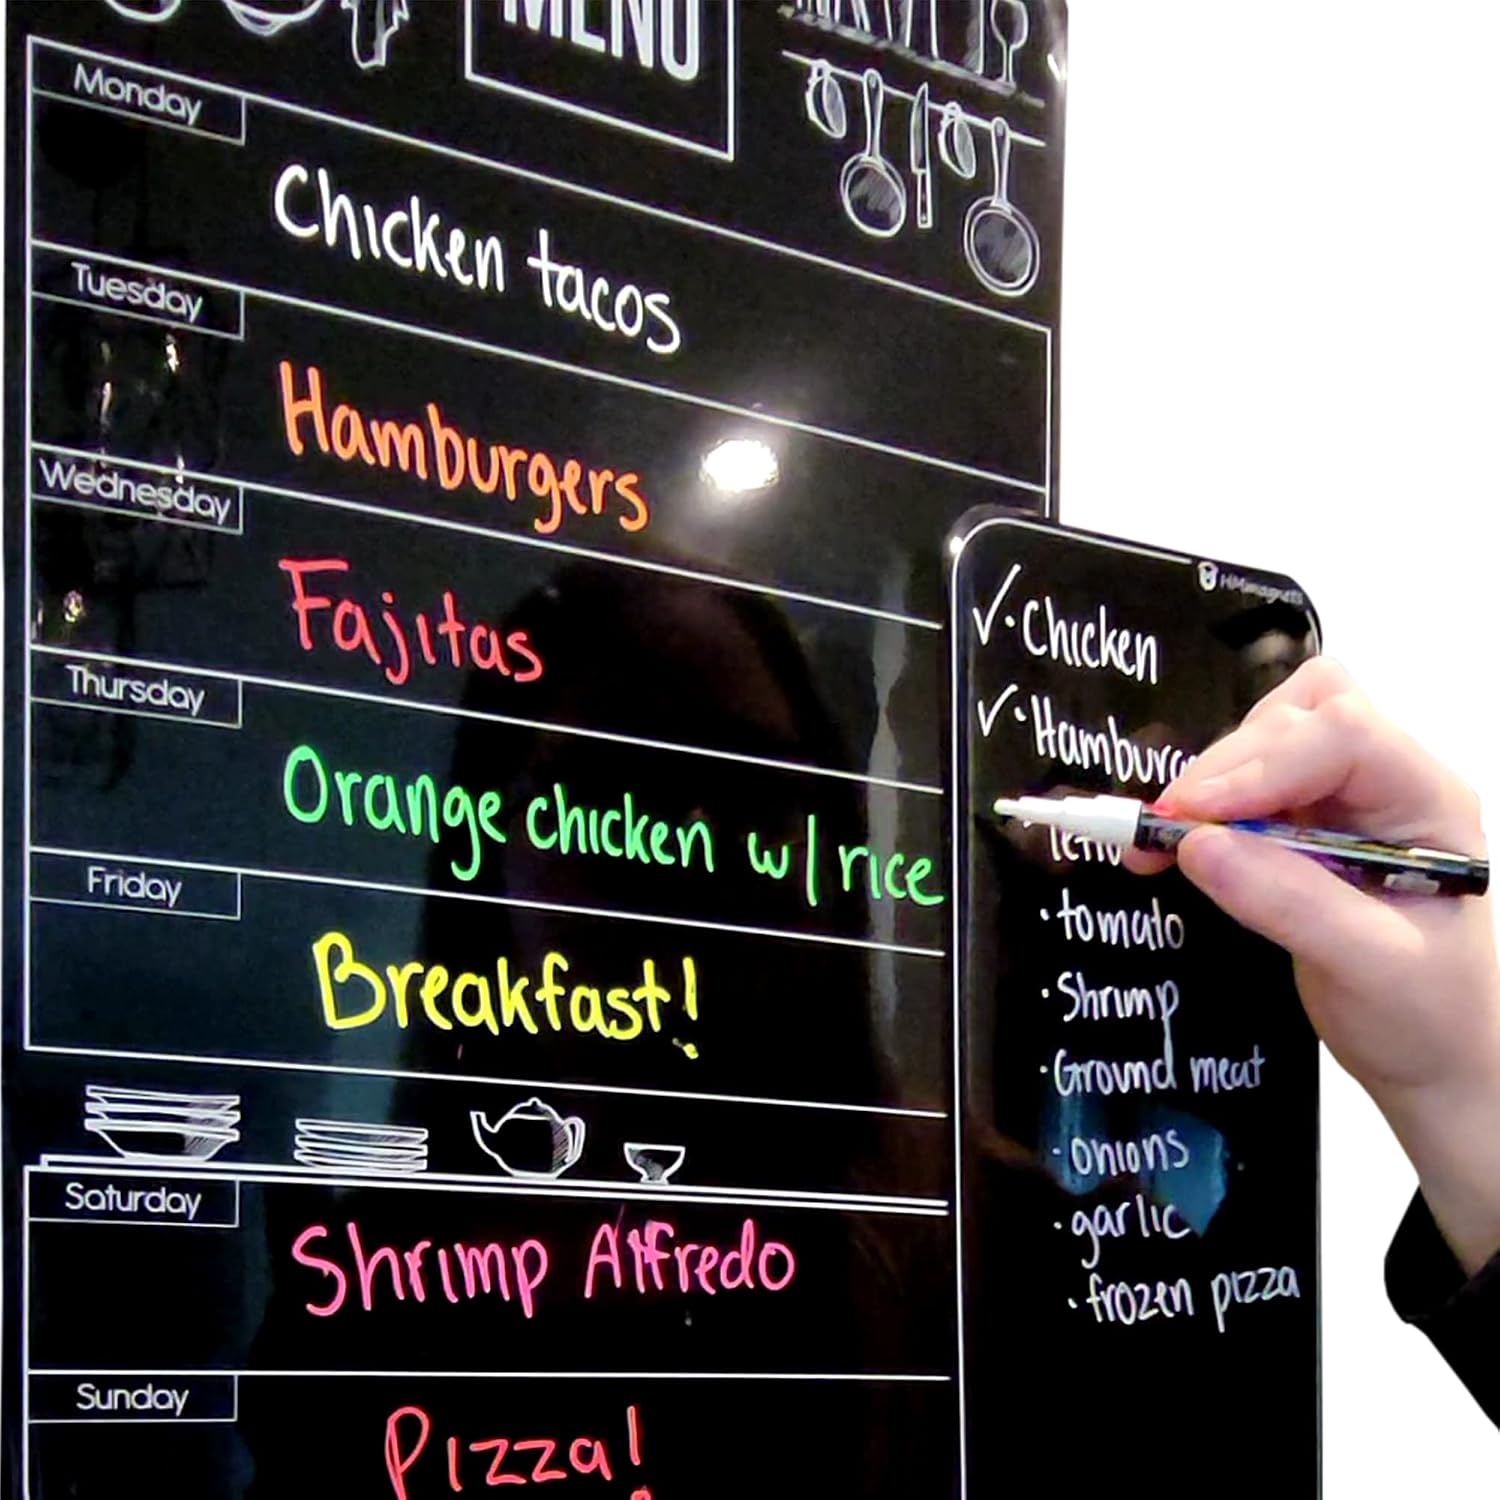 MENU
Monday
Chicken tacos
Tuesday
Hamburgers
Wednesday
Fajitas
Thursday
Orange chicken w/ rice
Friday
Breakfast!
Saturday
Shrimp Alfredo
Sunday
Pizza!
✓• Chicken
✓•
• tomato
• Shrimp
• Ground meat
• onions
• garlic
• frozen pizza